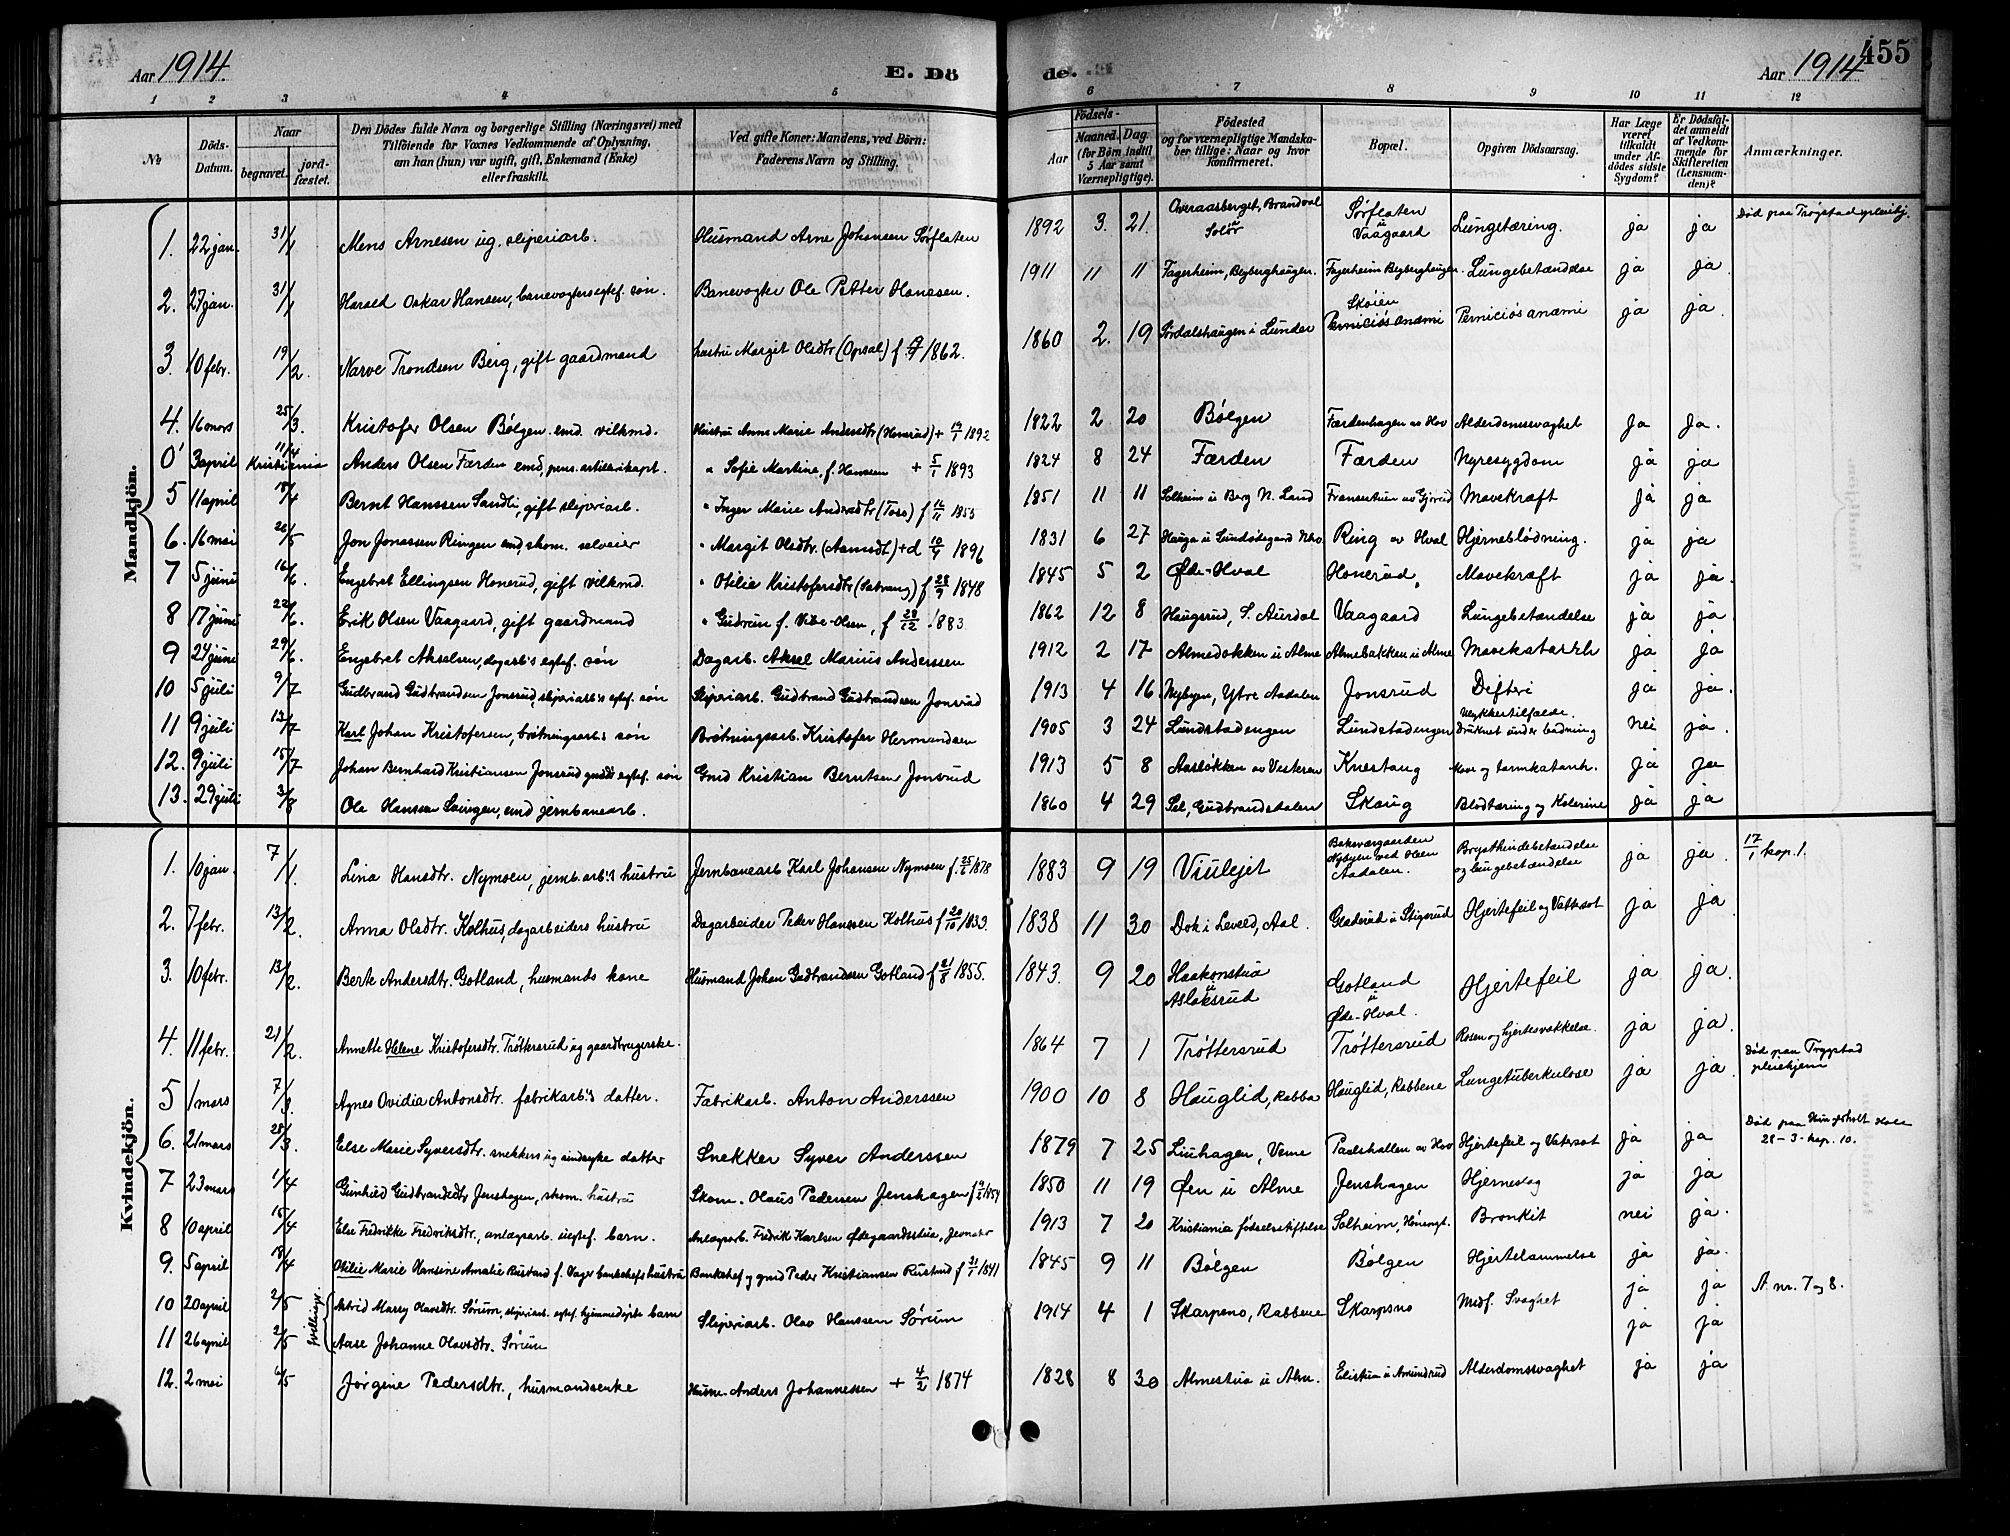 Aar 1914
E. Dö
de.
Aar 1914
455
1 2 3 4 5 6 7 8 9 10 11 12
№
Döds-Datum.
Naar
begravet.
jord-fæstet.
Den Dödes fulde Navn og borgerlige Stilling (Næringsvei) med
Tilföiende for Voxnes Vedkommende af Oplysning,
om han (hun) var ugift, gift, Enkemand (Enke)
eller fraskilt.
Ved gifte Koner: Mandens, ved Börn:
Faderens Navn og Stilling.
Födsels-
Aar
Maaned. Dag.
(for Börn indtil
5 Aar samt
Værnepligtige).
Födested
og for værnepligtige Mandska-
ber tillige: Naar og hvor
konfirmeret.
Bopæl.
Opgiven Dödsaarsag.
Har Læge
været
tilkaldt
under Af-
dödes sidste
Sygdom?
Er Dödsfal-
det anmeldt
af Vedkom-
mende for
Skifteretten
(Lensman-
den)?
Anmærkninger.
Mandkjön.
1. 22 jan. 31/1 Mens Arnesen ug. sliperiarb. Husmand Arne Johansen Sørflaten 1892 3. 21. Overaasberget, Brandval Solør Sørflaten u Vaagaard Lungetæring. ja ja Død paa Trøgstad pleiehj.
2. 27 jan. 31/1 Harald Oskar Hansen, banevogters egtef. søn. Banevogter Ole Petter Hanssen. 1911 11 11 Fagerheim, Begberghaugen. Fagerheim Begberghaugen. Lungebetændelse ja ja
3. 10 febr. 19/2. Narve Trondsen Berg, gift gaardmand hustru Margit Olsdtr (Opsal) f. 1862. 1860 2. 19 Sørdalshaugen i Lunder Skøien Perniciøs anæmi Perniciøs anæmi ja ja
4. 16 mars 25/3. Kristofer Olsen Bølgen. emd. vilkmd. Hustru Anne Marie Andersdtr (Honerud) + 19/1 1892 1822 2 20 Bølgen Færdenhagen av Hov Alderdomssvaghet Ja Ja.
0 3 april 11/4 Kristiania Anders Olsen Færden emd, pens. artillerikapt. " Sofie Martine, f. Hansen + 5/1 1893 1824 8 24 Færden Færden Nyresygdom ja ja
5 11 april 18/4 Bernt Hanssen Sandli, gift sliperiarb. " Inger Marie Andersdtr (Toso) f 16/11 1855 1851 11 11 Solheim u Berg N. Land Fransestuen av Gjørud Mavekræft ja ja
6. 16 mai 26/5 Jon Jonassen Ringen emd skom. selveier " Margit Olsdtr. (Aamodt) + d 10/9 1896 1831 6 27 Hauga u Sundødegaard Ring av Hval Hjerneblødning. ja ja
7 5 juni 16/6. Engebret Ellingsen Honerud, gift vilkmd. " Otilie Kristofersdtr (Sabrang) f 28/9 1848 1845 5 2 Øde-Hval Honerud, Mavekræft ja ja.
8 17 juni 22/6. Erik Olsen Vaagaard, gift gaardmand " Gudrun f. Vibe-Olsen, f 28/12 1883 1862 12 8 Haugsrud, S. Aurdal Vaagaard Lungebetændelse ja ja
9 24 juni 29/6. Engebret Akselsen, dagarb's egtef. søn Dagarb. Aksel Marius Anderssen 1912 2 17 Almebakken u Alme Almebakken u Alme Mavekatarrh ja ja
10 5 juli 9/7 Gudbrand Gudbrandsen Jonsrud, sliperiarb's egtef. søn Sliperiarb. Gudbrand Gudbrandsen Jonsrud 1913 4 16 Nybyen, Ytre Aadalen Jonsrud Difteri ja ja.
11 9 juli 13/7 Karl Johan Kristofersen, brøtningsarb.s søn Brøtningsarb. Kristofer Hermandsen 1905 3 24 Lundstadengen Lundstadengen Ulykkestilfælde. Druknet under badning nei ja.
12. 9 juli 15/7 Johan Bernhard Kristiansen Jonsrud gmds egtef. søn Gmd Kristian Berntsen Jonsrud 1913 5 8 Aasløkken av Vesteren Knestang Mave og tarmkatarrh. ja ja
13. 29 juli 3/8 Ole Hanssen Svingen, emd jernbanearb. 1860 4 29 Sel, Gudbrandsdalen Skaug Blodtæring og Kolerine ja ja
Kvindekjön.
1. 10 jan. 7/1. Lina Hansdtr. Nymoen, jernb.arb.'s hustru Jernbanearb Karl Johansen Nymoen f. 25/2 1878 1883 9 19 Viulejet Bakværgaarden Nybyen ved Heen Aadalen. Brysthindebetændelse og lungebetændelse ja ja. 17/1 kap. 1.
2. 7 febr. 13/2. Anna Olsdtr. Kolhus, dagarbeiders hustru Dagarbeider Peder Hanssen Kolhus f 20/10 1833. 1838 11 30 Dok i Leveld, Aal. Gladerud u Stigerud Hjertefeil og Vattersot ja ja
3. 10 febr. 13/2. Berte Andersdtr. Gotland, husmands kone Husmand Johan Gudbrandsen Gotland f 21/8 1855. 1843. 9 20 Haakonstua u Aslaksrud Gotland u Øde-Hval. Hjertefeil ja ja.
4. 11 febr. 21/2. Annette Helene Kristofersdtr. Trøttersrud ug gaardbrugerske. 1864 7 1 Trøttersrud Trøttersrud Rosen og hjertesvækkelse. ja ja.
5 1 mars 7/3. Agnes Ovidia Antonsdtr. fabrikarb's datter. Fabrikarb. Anton Anderssen 1900 10 8 Hauglid, Rabba Hauglid, Rabbene Lungetuberkulose ja ja. Død paa Trygstad pleiehjem
6. 21 mars 28/3. Else Marie Syversdtr. snekkers ug sindssyke datter Snekker Syver Anderssen 1879 7 25 Linhagen, Veme Paalshallen av Hov Hjertefeil og Vatersot ja ja Død paa Hungsholt Hole 28-3-kap. 10.
7 23 mars 1/4 Gunhild Gudbrandsdtr Jenshagen, skom. hustru Skom. Olaus Pedersen Jenshagen f 1854 1850 11 19 Øen u Alme Jenshagen Hjerneslag ja ja
8 10 april 15/4 Else Fredrikke Fredriksdtr., anlægsarb. uegtef. barn. Anlægsarb. Fredrik Karlsen Ødegaardsstua, Jevnaker 1913 7 20 Kristiania fødselsstiftelse Solheim, Hønengt. Bronkit nei ja.
9. 5 april 18/4 Otilie Marie Hansine Amalie Rustand f. Vager bankchefs hustru Bankchef og gmd Peder Kristiansen Rustand f 31/8 1841 1845 9 11 Bølgen Bølgen Hjertelammelse ja ja.
Tvillinger
10 20 april 2/5 Astrid Marry Olavsdtr. Sørum, sliperiarb. egtef. hjemmedøpte barn Sliperiarb. Olav Hanssen Sørum 1914 4 1 Skarpsno, Rabbene Skarpsno Medf. Svaghet ja ja A. nr. 7 og 8.
11 26 april 2/5 Aase Johanne Olavsdtr. Sørum ja ja
12. 2 mai 6/5 Jørgine Pedersdtr., husmandsenke Husm. Anders Johannessen + 4/2 1874 1828 8 30 Almestua u Alm. Elistua u Amundrud Alderdomssvaghet ja ja